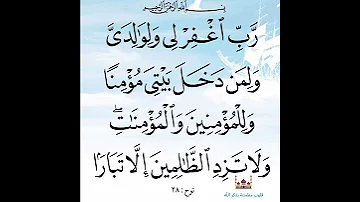 بِسْمِ اللَّهِ الرَّحْمَٰنِ الرَّحِيمِ
رَّبِّ ٱغْفِرْ لِى وَلِوَٰلِدَىَّ
وَلِمَن دَخَلَ بَيْتِىَ مُؤْمِنًا
وَلِلْمُؤْمِنِينَ وَٱلْمُؤْمِنَٰتِۖ
وَلَا تَزِدِ ٱلظَّٰلِمِينَ إِلَّا تَبَارًۢا
نوح : ٢٨
قلوب مطمئنة بذكر الله